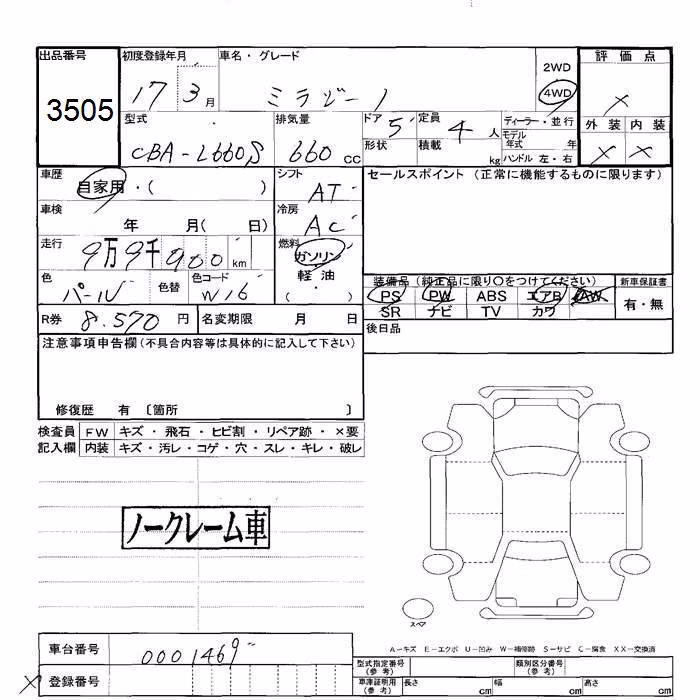 出品番号 初度登録年月 車名・グレード 評価点
3505 17 3月 ミラジーノ 2WD
4WD ×
型式 排気量 ドア 定員 ディーラー・並行 外装 内装
CBA-L660S 660cc 5 4人 モデル年式 年 × ×
形状 積載 kg ハンドル 左・右
車歴 シフト セールスポイント(正常に機能するものに限ります)
自家用・( ) AT
車検 冷房
年 月( 日) AC
走行 燃料
9万9千900km ガソリン
色 色替 色コード 軽油
パール W16 ( )
装備品(純正品に限り〇をつけてください) 新車保証書
PS PW ABS エアB AW 有・無
SR ナビ TV カワ
R券 8.570円 名変期限 月 日
後日品
注意事項申告欄(不具合内容等は具体的に記入して下さい)
修復歴 有 〔箇所 〕
検査員 FW キズ・飛石・ヒビ割・リペア跡・×要
記入欄 内装 キズ・汚レ・コゲ・穴・スレ・キレ・破レ
ノークレーム車
スペア
A−キズ E−エクボ U−凹み W−補修跡 S−サビ C−腐食 XX−交換済
車台番号 0001469
型式指定番号(参考) 類別区分番号(参考)
× 登録番号
車庫証明用(参考) 長さ cm 幅 cm 高さ cm